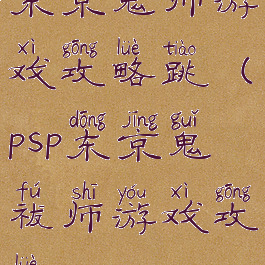 东京鬼师游
xì gōng lüè tiào
戏攻略跳（
dōng jīng guǐ
psp东京鬼
fú shī yóu xì gōng
祓师游戏攻
lüè